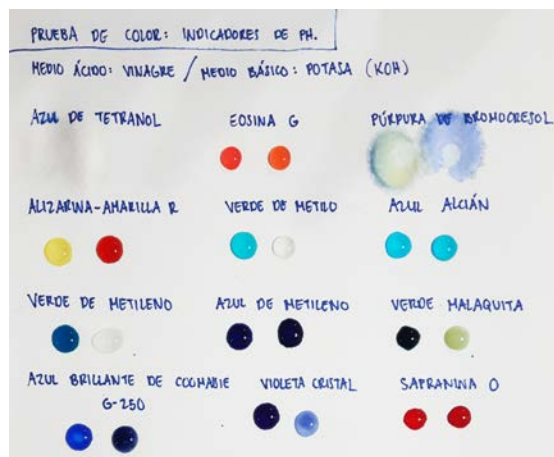 PRUEBA DE COLOR: INDICADORES DE PH.
MEDIO ÁCIDO: VINAGRE / MEDIO BÁSICO: POTASA (KOH)
AZUL DE TETRANOL
EOSINA G
PÚRPURA DE BROMOCRESOL
ALIZARINA-AMARILLA R
VERDE DE METILO
AZUL ALCIÁN
VERDE DE METILENO
AZUL DE METILENO
VERDE MALAQUITA
AZUL BRILLANTE DE COOMASIE
G-250
VIOLETA CRISTAL
SAFRANINA O